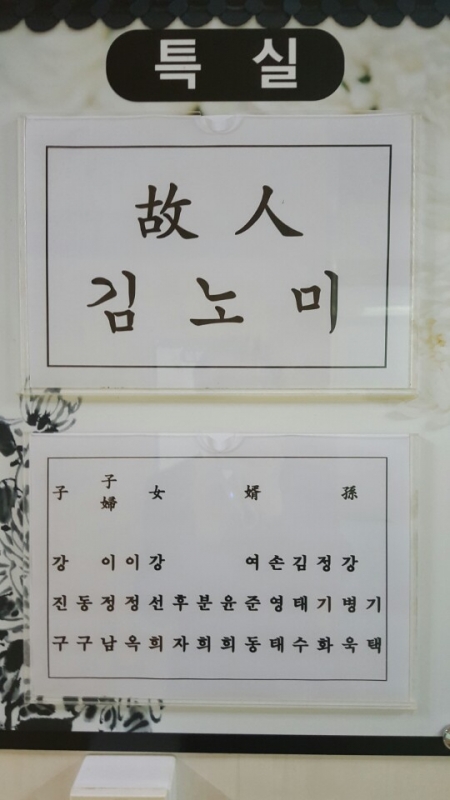 특 실
故 人
김 노 미
子 子婦 女 婿 孫
강 이 이 강 여 손 김 정 강
진 동 정 정 선 후 분 윤 준 영 태 기 병 기
구 구 남 옥 희 자 희 희 동 태 수 화 욱 택